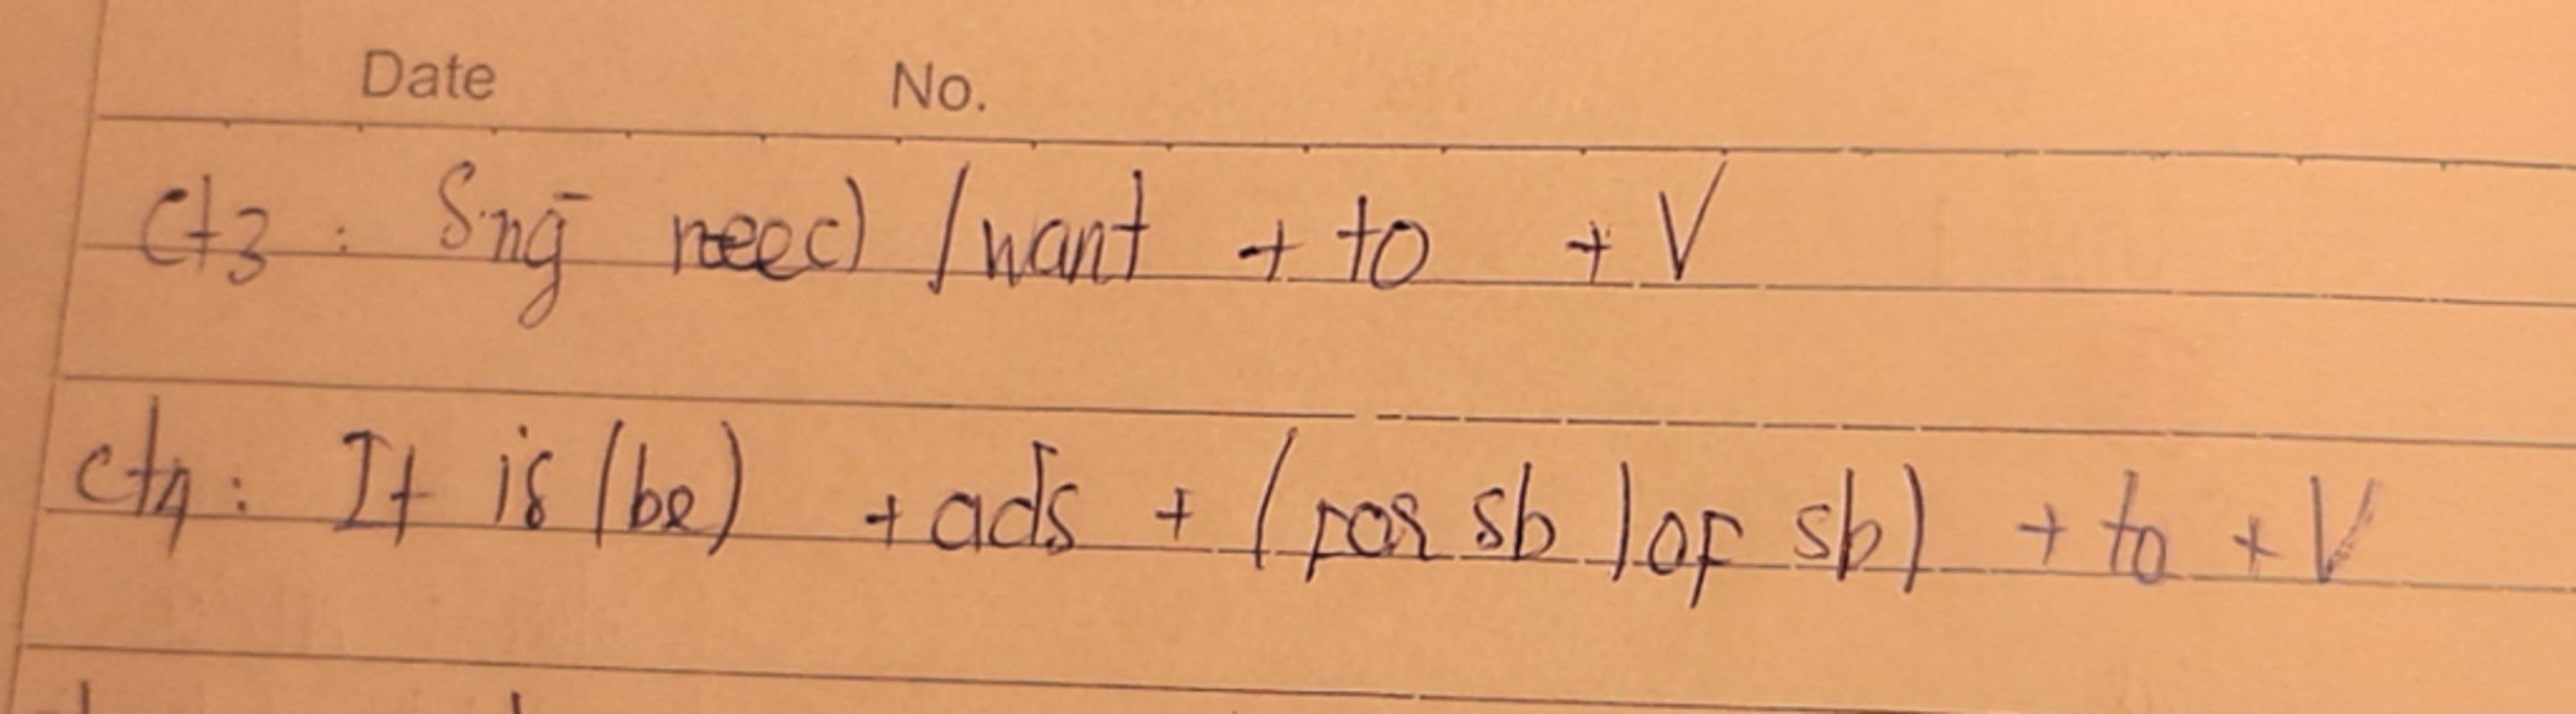 Date No.
Ct3 : Sng̅ need /want + to + V
Ct4 : It is (be) + ads + (for sb / of sb) + to + V